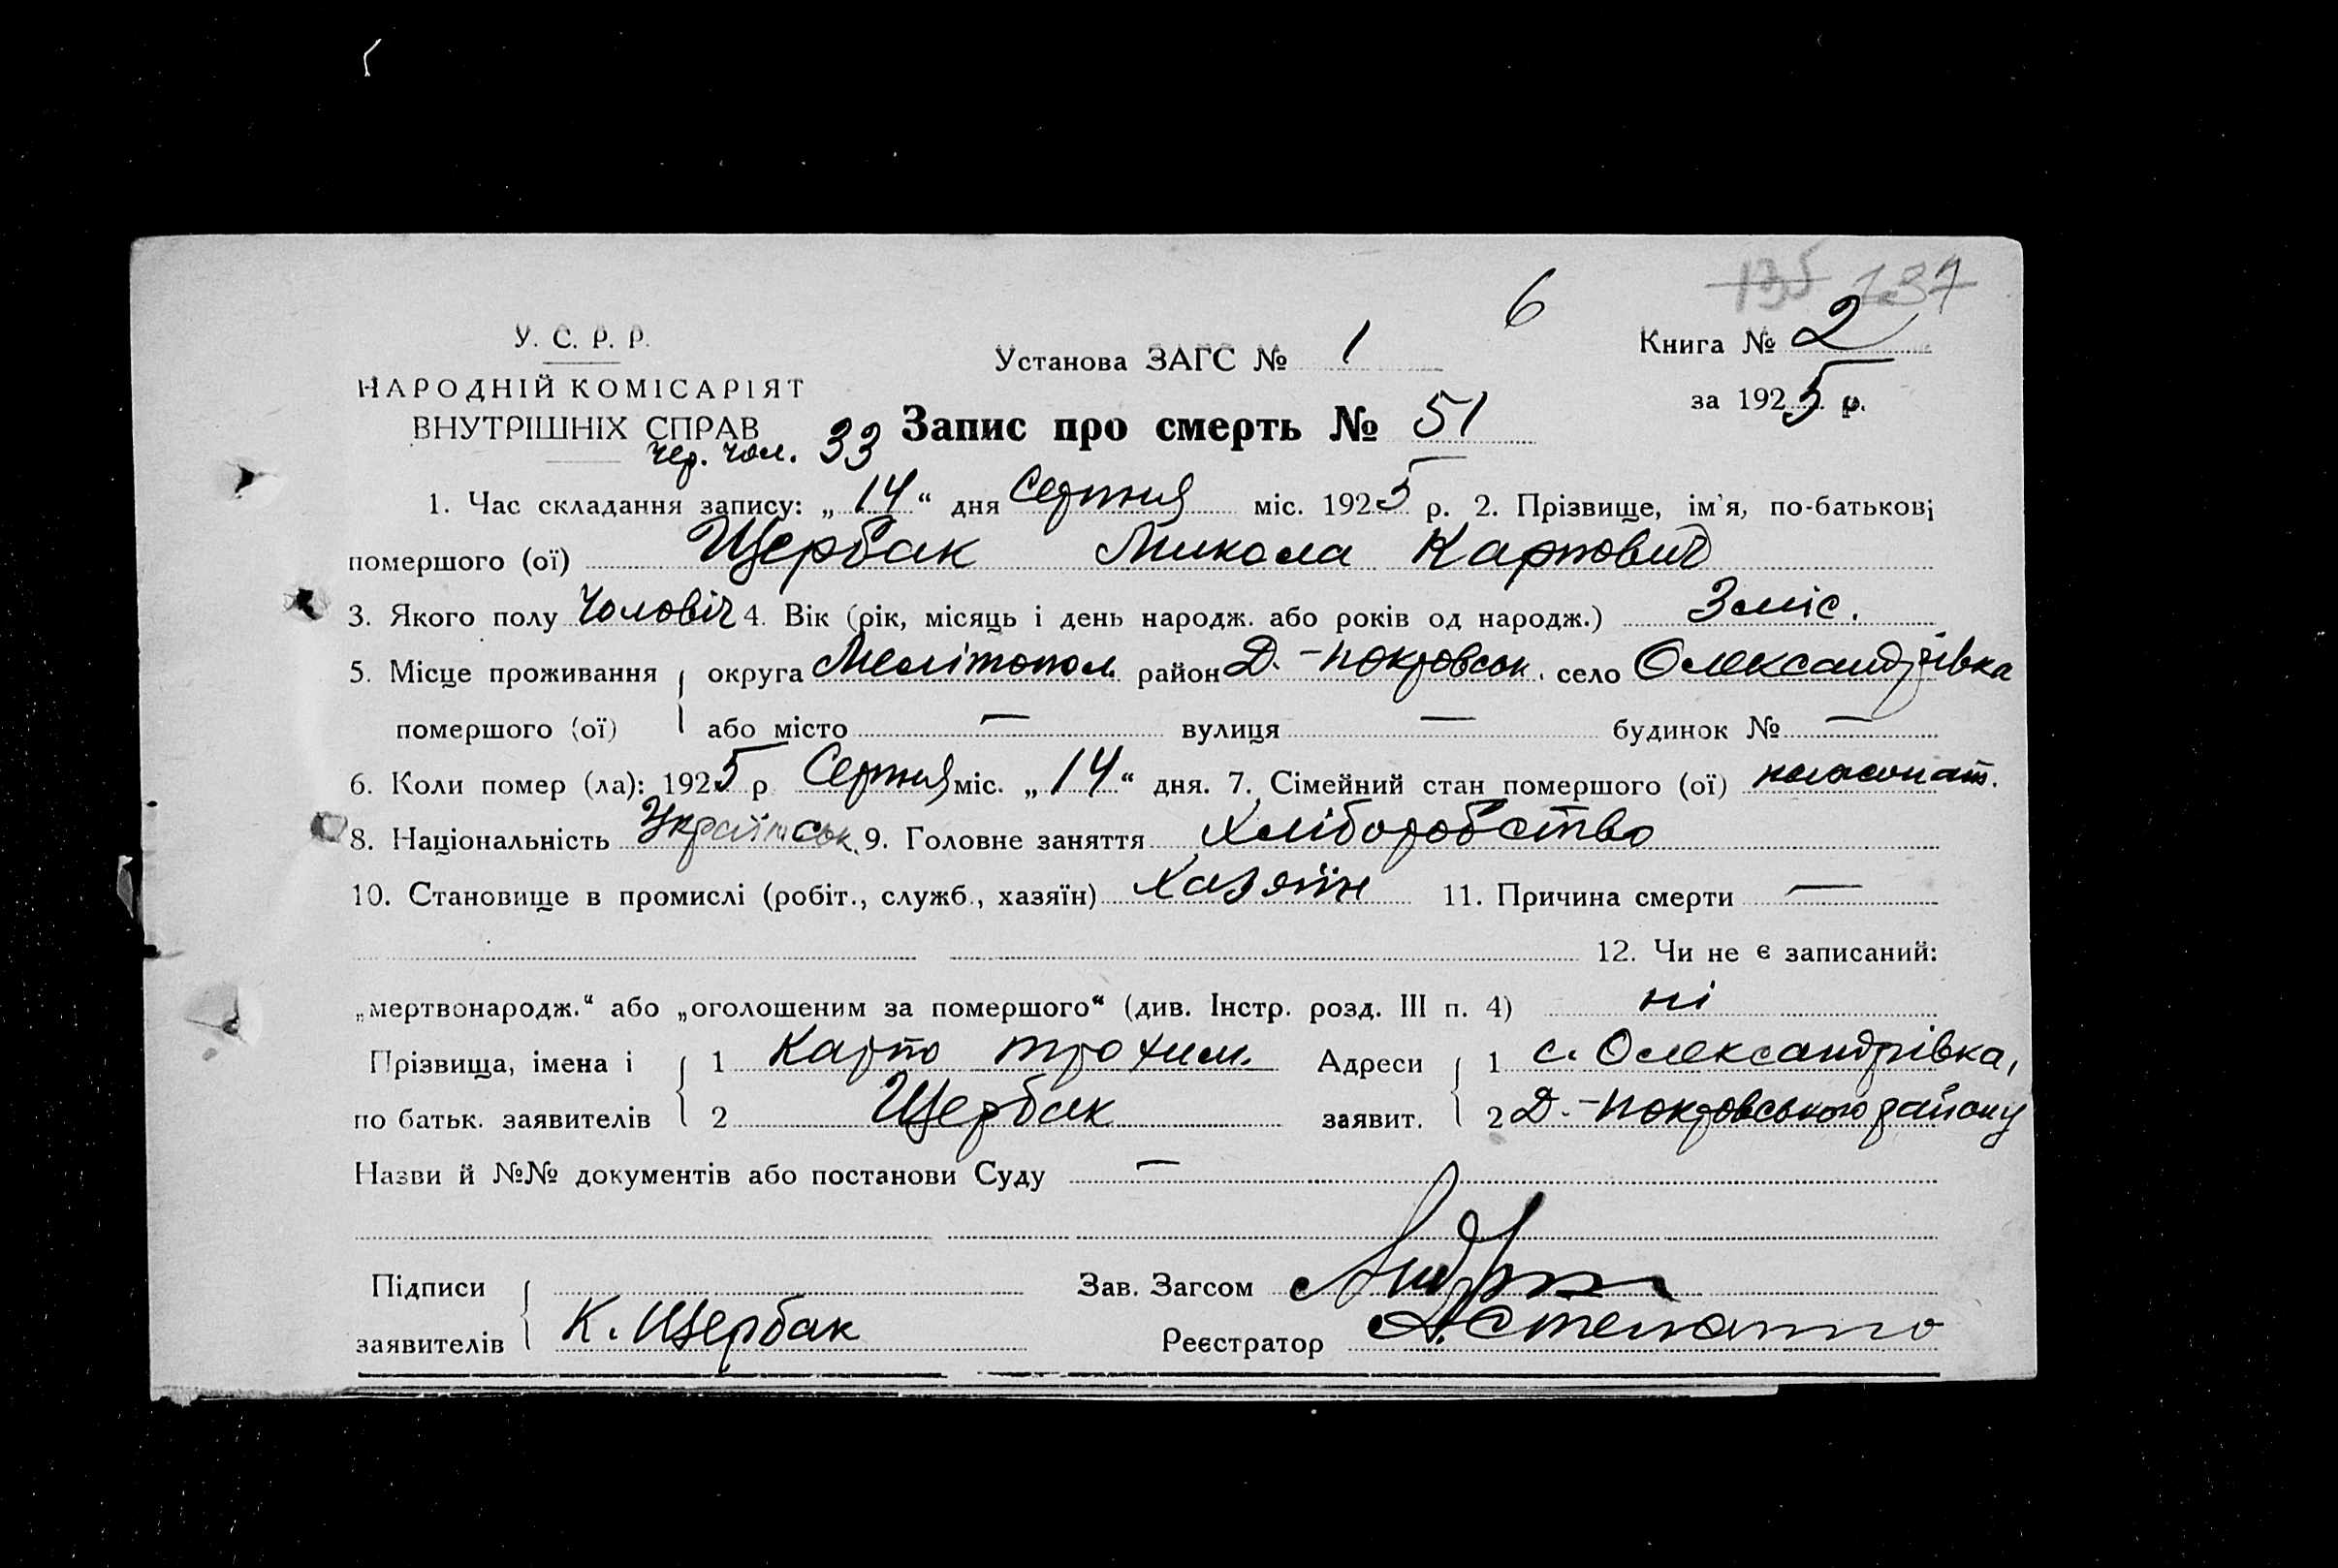 135 137
6
У. С. Р. Р.
НАРОДНІЙ КОМІСАРІЯТ
ВНУТРІШНІХ СПРАВ
Установа ЗАГС № 1
Книга № 2
за 1925 р.
чер. чол. 33 Запис про смерть № 51
1. Час складання запису: „14“ дня Серпня міс. 1925 р. 2. Прізвище, ім'я, по-батькові
помершого (ої) Щербак Микола Карпович
3. Якого полу чоловіч 4. Вік (рік, місяць і день народж. або років од народж.) 3 міс.
5. Місце проживання округа Мелітопол. район Д.-Покровськ. село Олександрівка
помершого (ої) або місто — вулиця — будинок № —
6. Коли помер (ла): 1925 р Серпня міс. „14“ дня. 7. Сімейний стан помершого (ої)
8. Національність Українськ. 9. Головне заняття Хліборобство
10. Становище в промислі (робіт., служб., хазяїн) Хазяїн 11. Причина смерти —
12. Чи не є записаний:
„мертвонародж.“ або „оголошеним за помершого“ (див. Інстр. розд. III п. 4) ні
Прізвища, імена і 1 Карпо Трохим. Адреси 1 с. Олександрівка,
по батьк. заявителів 2 Щербак заявит. 2 Д.-Покровського району
Назви й №№ документів або постанови Суду —
Підписи Зав. Загсом
заявителів К. Щербак Реєстратор